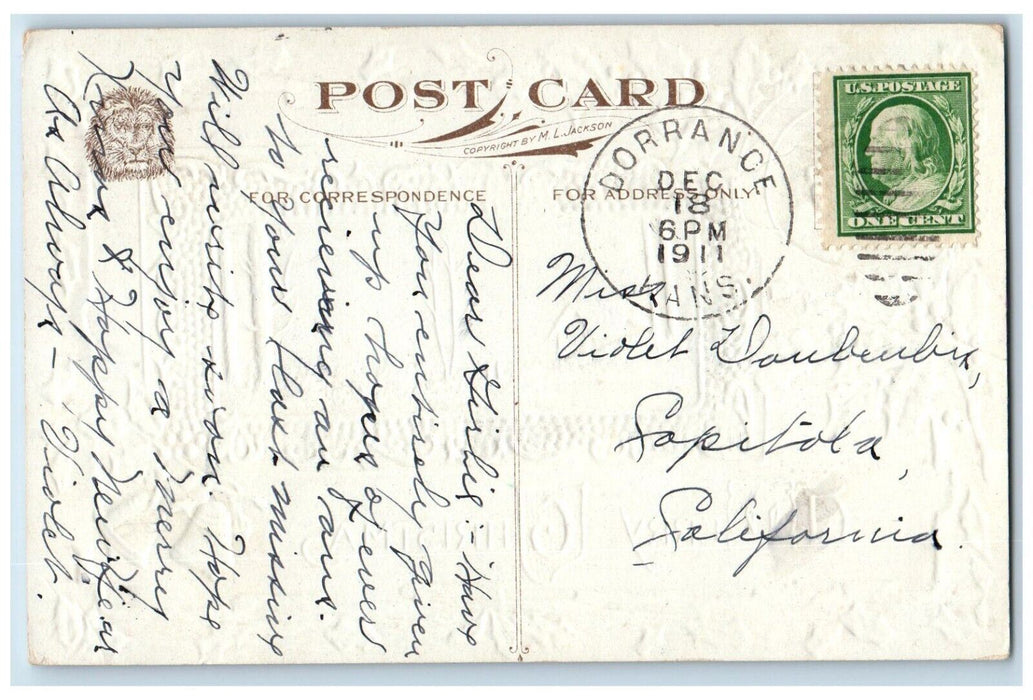 POST CARD
COPYRIGHT BY M. L. JACKSON
FOR CORRESPONDENCE
FOR ADDRESS ONLY
U.S. POSTAGE
ONE CENT
DORRANCE
DEC
18
6 PM
1911
KANS.
Miss
Violet
Capitola,
California.
Dear Girlie:- Have
You entirely given
up hopes of ever
receiving an ans.
to your last missive
Will write soon. Hope
you enjoy a Merry
Xmas & Happy New Year
As Always - Violet.